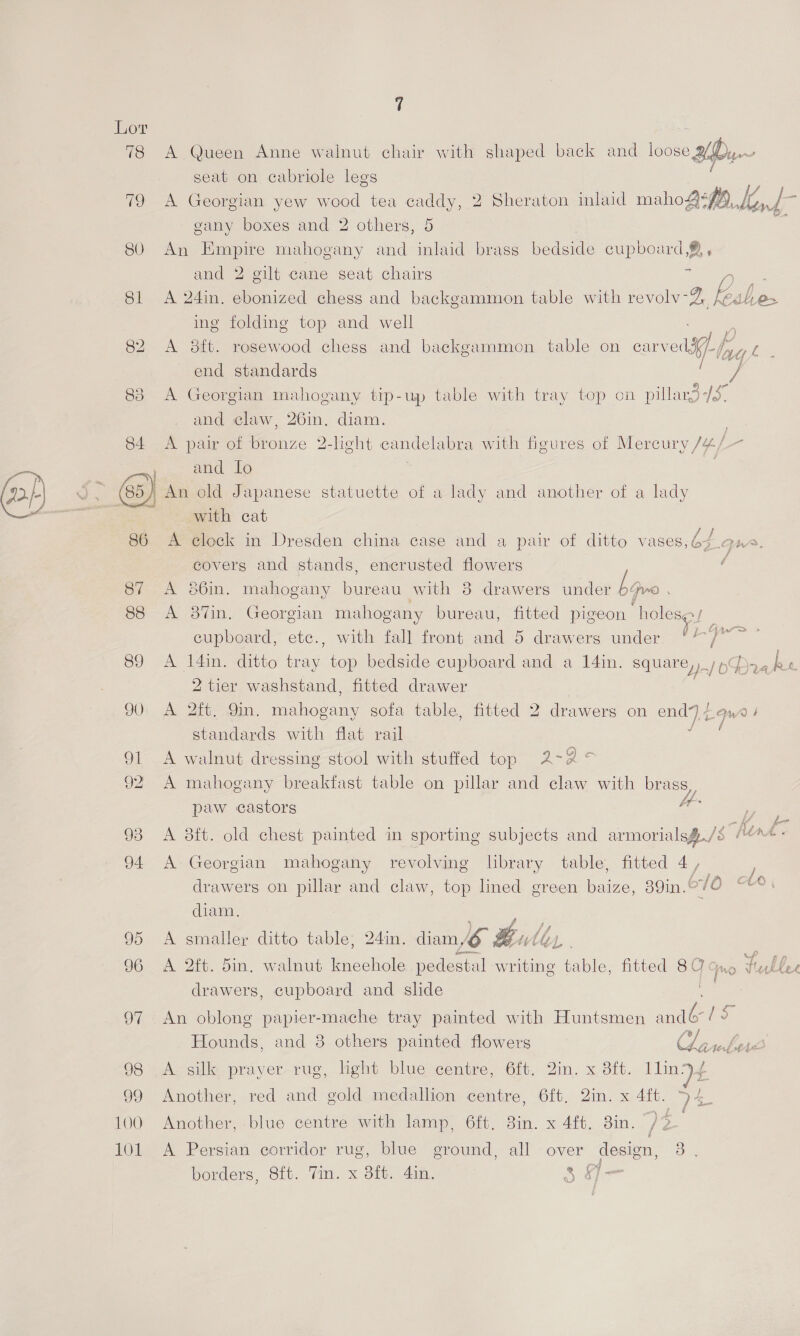 7
Lot
78 A Queen Anne walnut chair with shaped back and loose
seat on cabriole legs
79 A Georgian yew wood tea caddy, 2 Sheraton inlaid maho-
gany boxes and 2 others, 5
80 An Empire mahogany and inlaid brass bedside cupboard,
and 2 gilt cane seat chairs
81 A 24in. ebonized chess and backgammon table with revolv-
ing folding top and well
82 A 3ft. rosewood chess and backgammon table on carved
end standards
83 A Georgian mahogany tip-up table with tray top on pillar
and claw, 26in. diam.
84 A pair of bronze 2-light candelabra with figures of Mercury
and Io
85 An old Japanese statuette of a lady and another of a lady
with cat
86 A clock in Dresden china case and a pair of ditto vases,
covers and stands, encrusted flowers
87 A 36in. mahogany bureau with 3 drawers under
88 A 37in. Georgian mahogany bureau, fitted pigeon holes,
cupboard, etc., with fall front and 5 drawers under
89 A 14in. ditto tray top bedside cupboard and a 14in. square Drake
2 tier washstand, fitted drawer
90 A 2ft. 9in. mahogany sofa table, fitted 2 drawers on end
standards with flat rail
91 A walnut dressing stool with stuffed top
92 A mahogany breakfast table on pillar and claw with brass
paw castors
93 A 3ft. old chest painted in sporting subjects and armorials
94 A Georgian mahogany revolving library table, fitted 4
drawers on pillar and claw, top lined green baize, 39in.
diam.
95 A smaller ditto table, 24in. diam.
96 A 2ft. 5in. walnut kneehole pedestal writing table, fitted 8 Fuller
drawers, cupboard and slide
97 An oblong papier-mache tray painted with Huntsmen and
Hounds, and 3 others painted flowers
98 A silk prayer rug, light blue centre, 6ft. 2in. x 3ft. 11in.
99 Another, red and gold medallion centre, 6ft. 2in. x 4ft.
100 Another, blue centre with lamp, 6ft. 3in. x 4ft. 3in.
101 A Persian corridor rug, blue ground, all over design, 3
borders, 8ft. 7in. x 3ft. 4in.